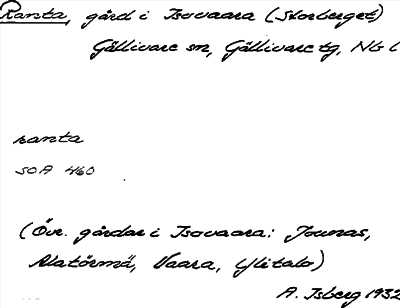 Ranta, gård i Isovaara (Storberget)
Gällivare sn, Gällivare tg, Nb l
ranta
SOA 460
(Övr. gårdar i Isovaara: Jounas,
Alatörmä, Vaara, Ylitalo)
A. Isberg 1932